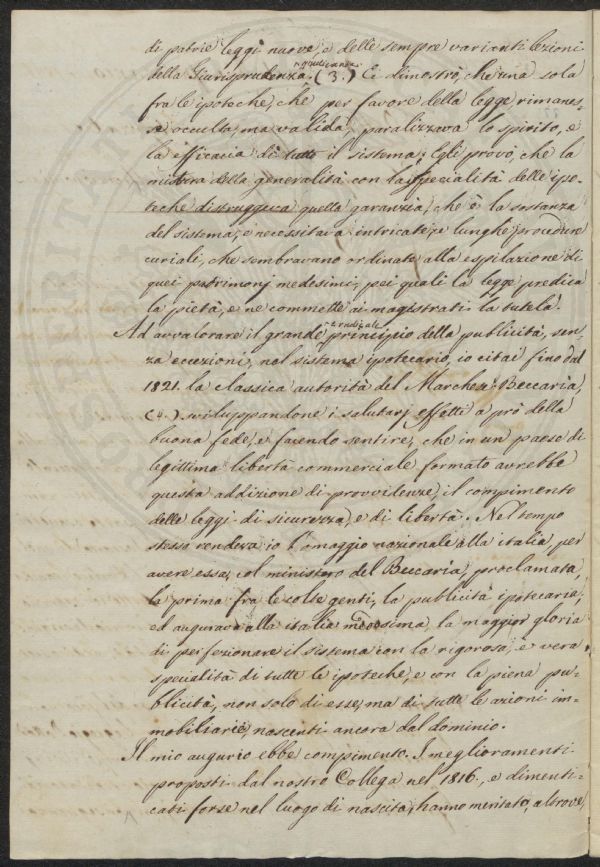 di patrie leggi nuove, e delle sempre varianti lezioni
della Giurisprudenza giudicante. (3.) E dimostrò, che una sola
fra le ipoteche, che per favore della legge rimanes-
se occulta, ma valida, paralizzava lo spirito, e
la efficacia di tutto il sistema; Egli provò, che la
mistura della generalità con la specialità delle ipo-
teche distruggeva quella garanzia, che è la sostanza
del sistema, e necessitava intricate, e lunghe procedure
curiali, che sembravano ordinate alla espilazione di
quei patrimonj medesimi, pei quali la legge predica
la pietà, e ne commette ai magistrati la tutela.
Ad avvalorare il grande e radicale principio della publicità, sen-
za eccezioni, nel sistema ipotecario, io citai fino dal
1821. la classica autorità del Marchese Beccaria,
(4.) sviluppandone i salutarj effetti a prò della
buona fede, e facendo sentire, che in un paese di
legittima libertà commerciale formato avrebbe
questa addizione di provvidenze, il compimento
delle leggi di sicurezza, e di libertà. Nel tempo
stesso rendeva io l'omaggio nazionale alla italia, per
avere essa, col ministero del Beccaria, proclamata,
la prima fra le colte genti, la publicità ipotecaria;
ed augurava alla italia medesima, la maggior gloria
di perfezionare il sistema con la rigorosa, e vera
specialità di tutte le ipoteche, e con la piena pu-
blicità, non solo di esse, ma di tutte le azioni im-
mobiliarie, nascenti ancora dal dominio.
Il mio augurio ebbe compimento. I miglioramenti
proposti dal nostro Collega nel 1816., e dimenti-
cati forse nel luogo di nascita, hanno meritato, altrove,